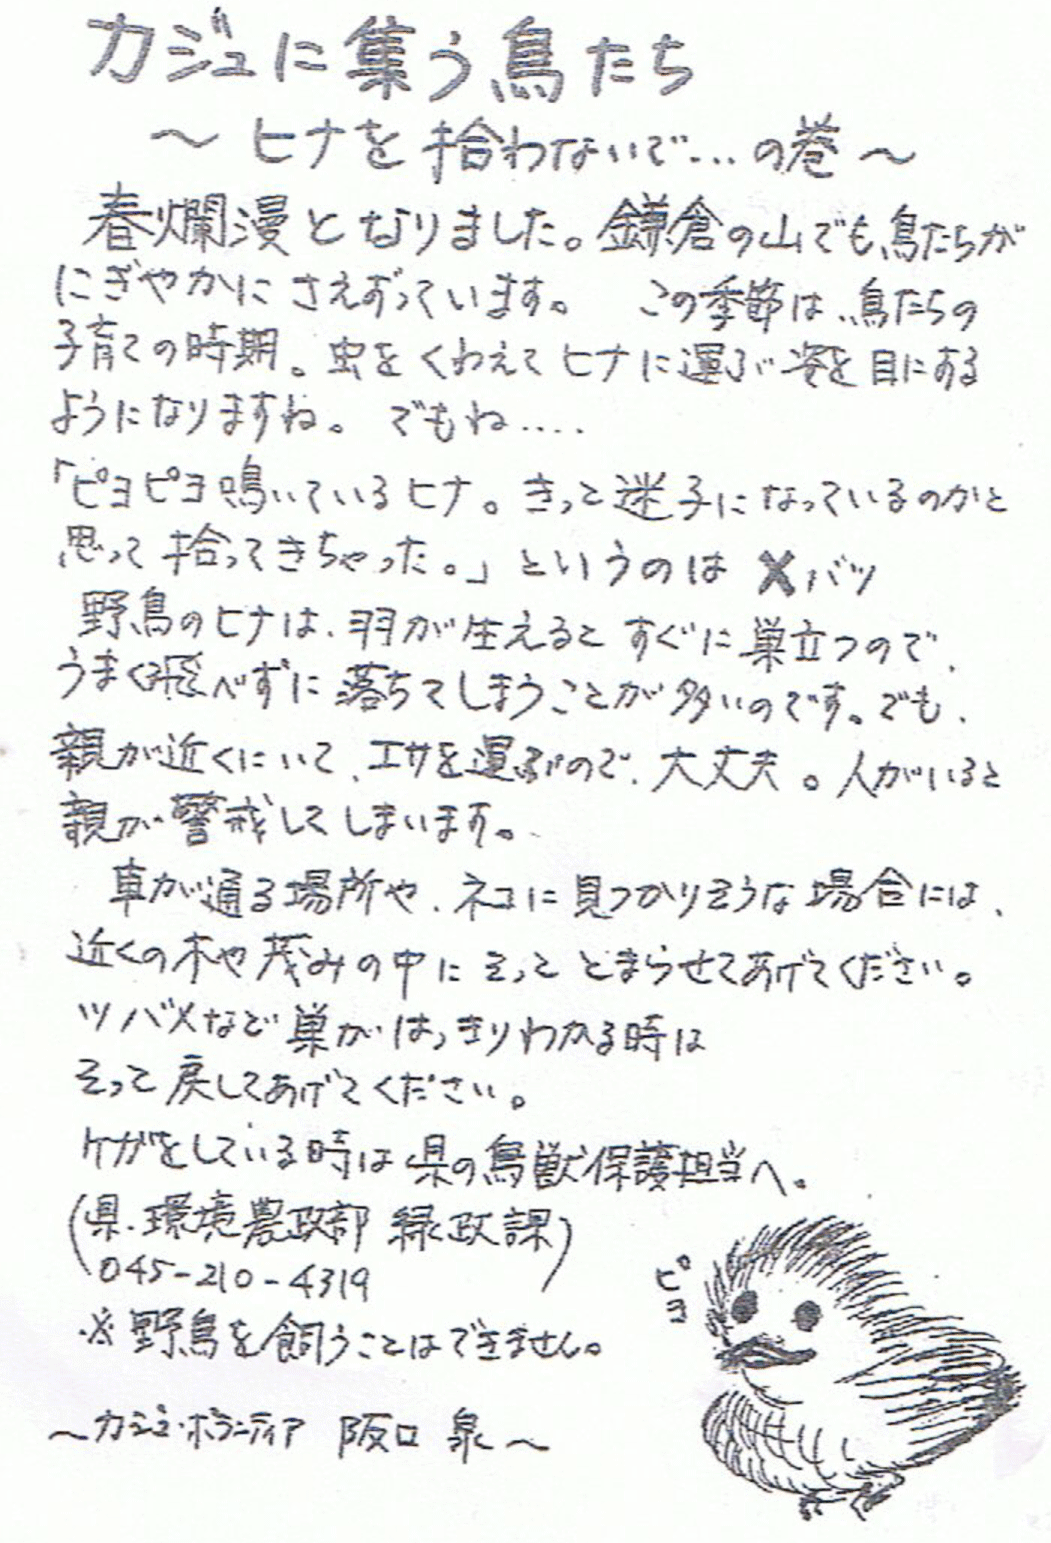 カジュに集う鳥たち
～ヒナを拾わないで…の巻～
春爛漫となりました。鎌倉の山でも、鳥たちが
にぎやかにさえずっています。 この季節は、鳥たちの
子育ての時期。虫をくわえてヒナに運ぶ姿を目にある
ようになりますね。でもね‥‥
「ピヨピヨ鳴いているヒナ。きっと迷子になっているのかと
思って拾ってきちゃった。」というのは ✕バツ
野鳥のヒナは、羽が生えるとすぐに巣立つので、
うまく飛べずに落ちてしまうことが多いのです。でも、
親が近くにいて、エサを運ぶので、大丈夫。人がいると
親が警戒してしまいます。
車が通る場所や、ネコに見つかりそうな場合には、
近くの木や茂みの中にそっととまらせてあげてください。
ツバメなど巣がはっきりわかる時は
そって戻してあげてください。
ケガをしている時は県の鳥獣保護担当へ。
(県・環境農政部 緑政課)
045-210-4319
※野鳥を飼うことはできません。
ピヨ
～カジュ・ボランティア 阪口 泉～